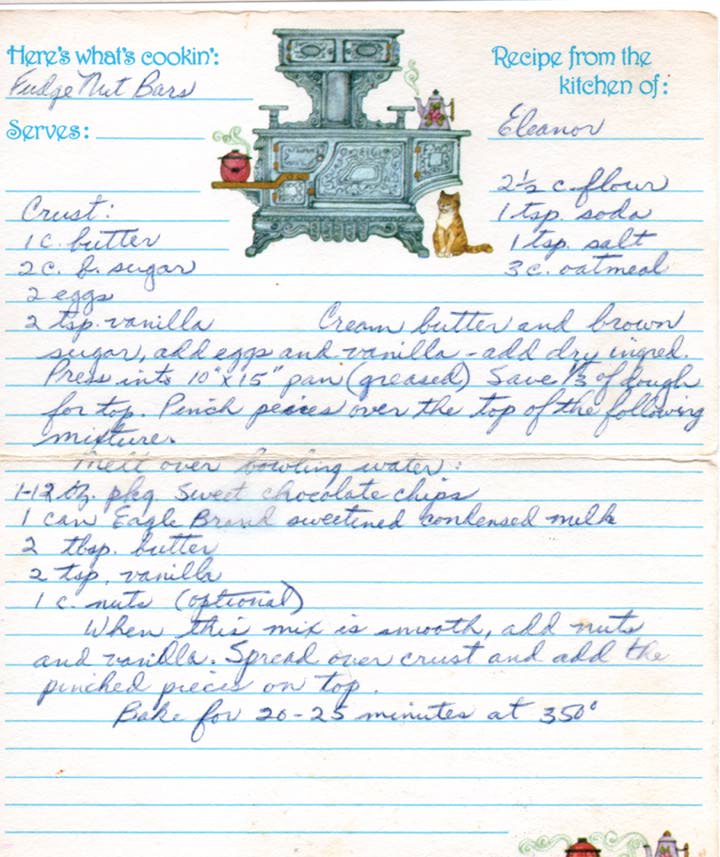 Here's what's cookin':
Fudge Nut Bars
Serves:
Recipe from the
kitchen of:
Eleanor
Crust:
1 c. butter
2 c. b. sugar
2 eggs
2 tsp. vanilla
2 1/2 c. flour
1 tsp. soda
1 tsp. salt
3 c. oatmeal
Cream butter and brown
sugar, add eggs and vanilla - add dry ingred.
Press into 10" x 15" pan (greased) Save 1/3 of dough
for top. Pinch peices over the top of the following
mixture.
Melt over bowling water:
1-12 oz. pkg. Sweet chocolate chips
1 can Eagle Brand sweetened condensed milk
2 tbsp. butter
2 tsp. vanilla
1 c. nuts (optional)
When this mix is smooth, add nuts
and vanilla. Spread over crust and add the
pinched pieces on top.
Bake for 20-25 minutes at 350°